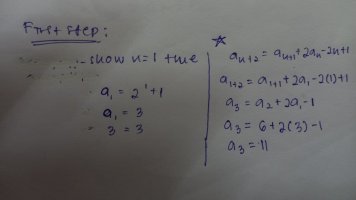 First step:
show n=1 true
a₁ = 2¹+1
a₁ = 3
3 = 3
☆
aₙ₊₂ = aₙ₊₁+2aₙ-2n+1
a₁₊₂ = a₁₊₁+2a₁-2(1)+1
a₃ = a₂+2a₁-1
a₃ = 6+2(3)-1
a₃ = 11